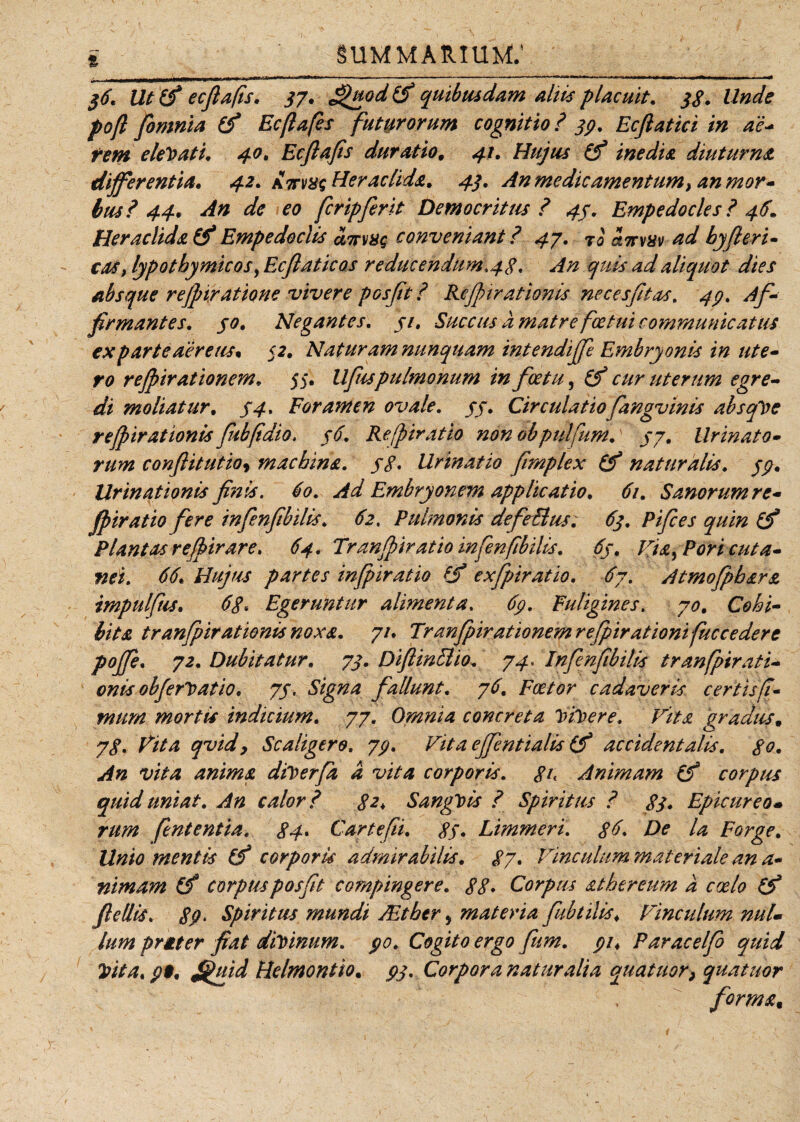 2 SUMMARIUM.
36. Ut & ecſtaſis. 37. Quod & quibusdam aliis placuit. 38. Unde
poſt ſomnia & Ecſtaſes futurorum cognitio? 39. Ecſtatici in aë-
rem eleVati. 40. Ecſtaſis duratio. 41. Hujus & inediæ diuturnæ
differentia. 42. ἄπνȣς Heraclidæ. 43. An medicamentum, an mor-
bus? 44. An de eo ſcripſerit Democritus? 45. Empedocles? 46.
Heraclidæ & Empedoclis ἄπνȣς conveniant? 47. τὸ ἄπνȣν ad hyſteri-
cas, lypothymicos, Ecſtaticos reducendum. 48. An quis ad aliquot dies
absque reſpiratione vivere posſit? Reſpirationis necesſitas. 49. Af-
firmantes. 50. Negantes. 51. Succus à matre fœtui communicatus
ex parte aëreus. 52. Naturam nunquam intendiſſe Embryonis in ute-
ro reſpirationem. 53. Uſus pulmonum in fœtu, & cur uterum egre-
di moliatur. 54. Foramen ovale. 55. Circulatio ſangvinis absqVe
reſpirationis ſubſidio. 56. Reſpiratio non ob pulſum. 57. Urinato-
rum conſtitutio, machinæ. 58. Urinatio ſimplex & naturalis. 59.
Urinationis finis. 60. Ad Embryonem applicatio. 61. Sanorum re-
ſpiratio fere inſenſibilis. 62. Pulmonis defectus. 63. Piſces quin &
Plantas reſpirare. 64. Tranſpiratio inſenſibilis. 65. Viæ, Pori cuta-
nei. 66. Hujus partes inſpiratio & exſpiratio. 67. Atmoſphæræ
impulſus. 68. Egeruntur alimenta. 69. Fuligines. 70. Cohi-
bitæ tranſpirationis noxæ. 71. Tranſpirationem reſpirationi ſuccedere
poſſe. 72. Dubitatur. 73. Diſtinctio. 74. Inſenſibilis tranſpirati-
onis obſerVatio. 75. Signa fallunt. 76. Fœtor cadaveris certisſi-
mum mortis indicium. 77. Omnia concreta ViVere. Vitæ gradus.
78. Vita qvid, Scaligero. 79. Vita eſſentialis & accidentalis. 80.
An vita animæ diVerſa à vita corporis. 81. Animam & corpus
quid uniat. An calor? 82. SangVis? Spiritus? 83. Epicureo-
rum ſententia. 84. Carteſii. 85. Limmeri. 86. De la Forge.
Unio mentis & corporis admirabilis. 87. Vinculum materiale an a-
nimam & corpus posſit compingere. 88. Corpus æthereum à cœlo &
ſtellis. 89. Spiritus mundi Æther, materia ſubtilis. Vinculum nul-
lum præter fiat diVinum. 90. Cogito ergo ſum. 91. Paracelſo quid
Vita. 92. Quid Helmontio. 93. Corpora naturalia quatuor, quatuor
formæ.